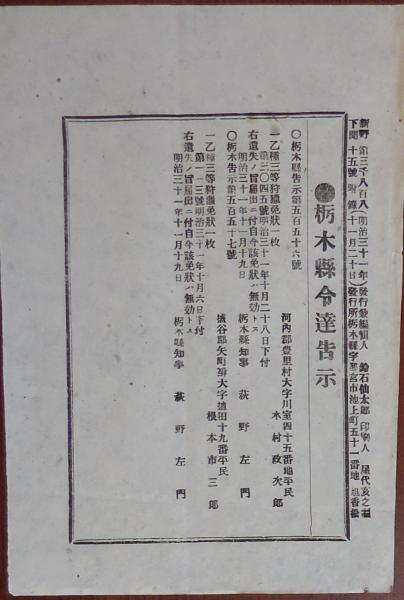 新野 第三千八百八(明治三十一年)發行兼編輯人 鈴石仙太郎 印刷人 屋代亥之
下聞 十五號 附錄(十一月二十日)發行所栃木縣宇都宮市池上町五十一番地 旭香
栃木縣令達告示
〇栃木縣告示第五百五十六號
河內郡豐里村大字川室四十五番地平民
木村政次郎
一乙種三等狩獵免狀一枚
第三〇四五號明治三十一年十月二十八日下付
右遺失ノ旨屆出ニ付自今該免狀ハ無効トス
明治三十一年十一月十九日
栃木縣知事 萩野左門
〇栃木告示第五百五十七號
塩谷郡矢町大字 十九番平民
根本市三郎
一乙種三等狩獵免狀一枚
第一一三號明治三十一年十月六日下付
右遺失ノ旨屆出ニ付自今該免狀ハ無効トス
明治三十一年十一月十九日
栃木縣知事 萩野左門